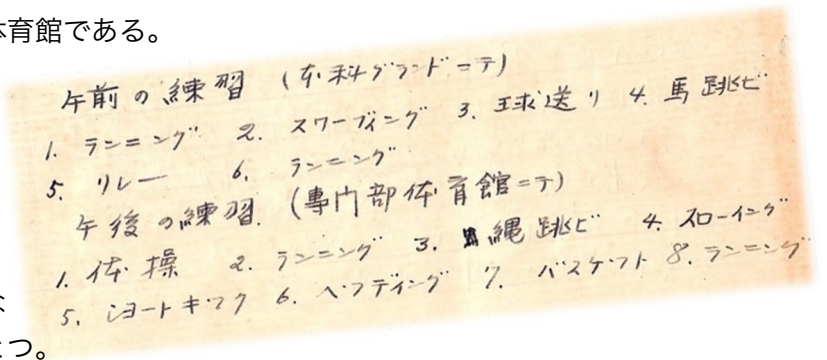 体育館である。
午前の練習 (本科グランドニテ)
1. ランニング 2. スワーブイング 3. 球送リ 4. 馬跳ビ
5. リレー 6. ランニング
午後の練習. (専門部体育館ニテ)
1. 体操 2. ランニング 3. 縄跳ビ 4. スローイング
5. ショートキック 6. ヘッディング 7. バスケット 8. ランニング
とつ。